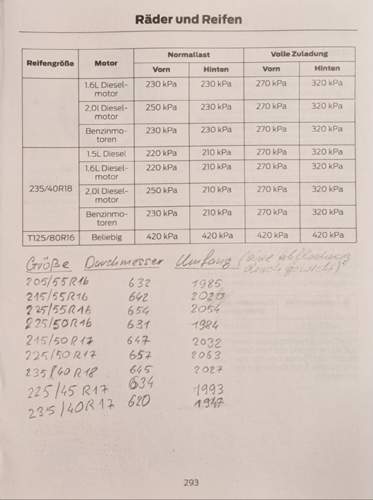 Räder und Reifen
Reifengröße Motor Normallast Volle Zuladung
Vorn Hinten Vorn Hinten
1.6L Diesel-motor 230 kPa 230 kPa 270 kPa 320 kPa
2,0l Diesel-motor 250 kPa 230 kPa 270 kPa 320 kPa
Benzinmo-toren 230 kPa 230 kPa 270 kPa 320 kPa
235/40R18 1.5L Diesel 220 kPa 210 kPa 270 kPa 320 kPa
1,6L Diesel-motor 220 kPa 210 kPa 270 kPa 320 kPa
2,0l Diesel-motor 250 kPa 210 kPa 270 kPa 320 kPa
Benzinmo-toren 230 kPa 210 kPa 270 kPa 320 kPa
T125/80R16 Beliebig 420 kPa 420 kPa 420 kPa 420 kPa
Größe Durchmesser Umfang (
205/55R16 632 1985
215/55R16 642 2020
225/55R16 654 2054
225/50R16 631 1984
215/50R17 647 2032
225/50R17 657 2063
235/40R18 645 2027
225/45R17 634 1993
235/40R17 620 1947
293